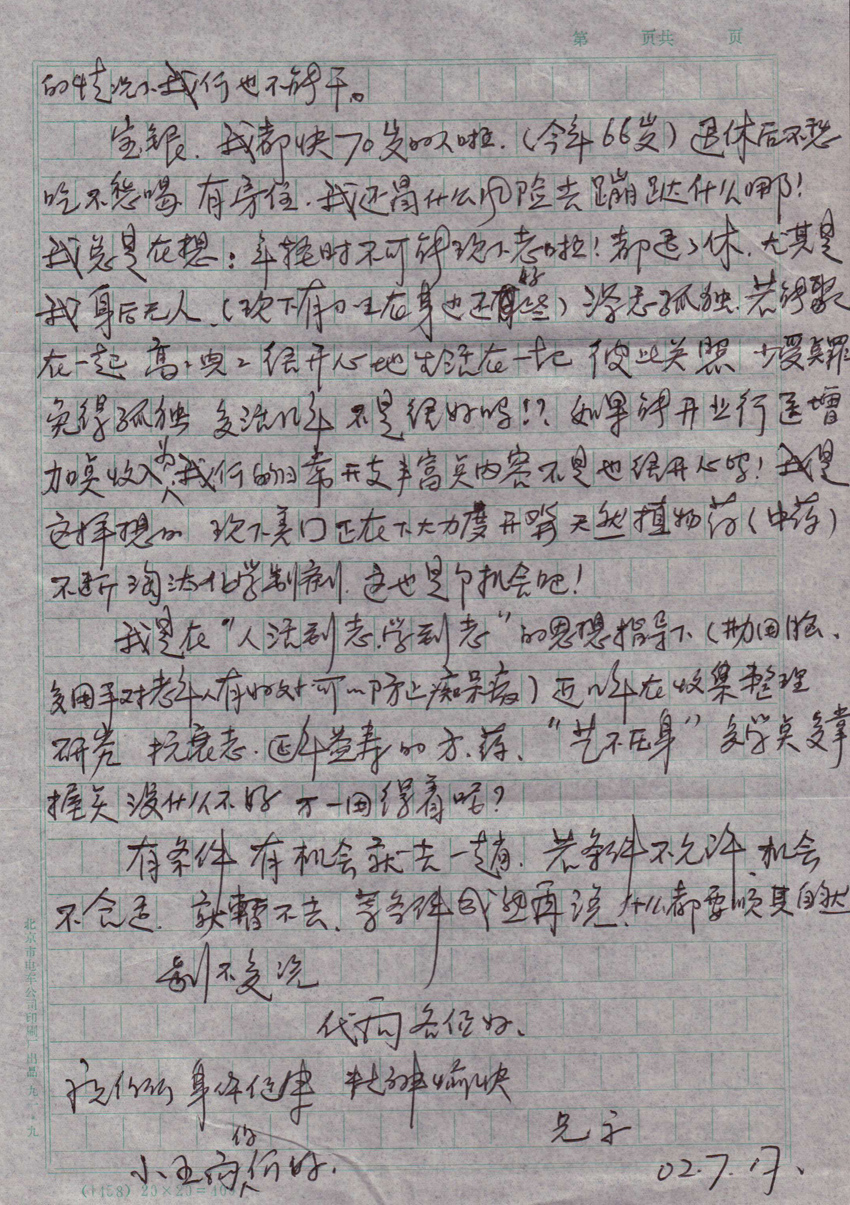 第 页共 页
的情况下我们也不能干。
宝银、我都快70岁的人啦.（今年66岁）退休后不愁
吃不愁喝 有房住.我还冒什么风险去蹦跶什么哪！
我总是在想：年轻时不可能现下老啦！都退了休、尤其是
我身后无人、（现下有小王在身也还好些）深感孤独.若能聚
在一起 高高兴兴很开心地生活在一起 彼此关照 少受点罪
免得孤独 多活几年 不是很好吗!? 如果能开业行医增
加点收入为我们的日常开支丰富点内容不是也很开心吗！我是
这样想的 现下美门正在下大力度开发天然植物药（中药）
不断淘汰化学制剂.这也是个机会吧！
我是在“人活到老.学到老”的思想指导下（勤用脑、
多用手对老年人有好处可以防止痴呆病）近几年在收集整理
研究 抗衰老.延年益寿的方.药、“艺不压身”多学点多掌
握点没什么不好 万一用得着呢？
有条件 有机会就去一趟.若条件不允许、机会
不合适.就暂不去、等条件成熟再说、什么都要顺其自然
别不多说
代问各位好、
祝你们身体健康 精神愉快
兄字
小王问你们好.
02.7.17、
北京市电车公司印刷厂出品 九
(1458) 20×20=400